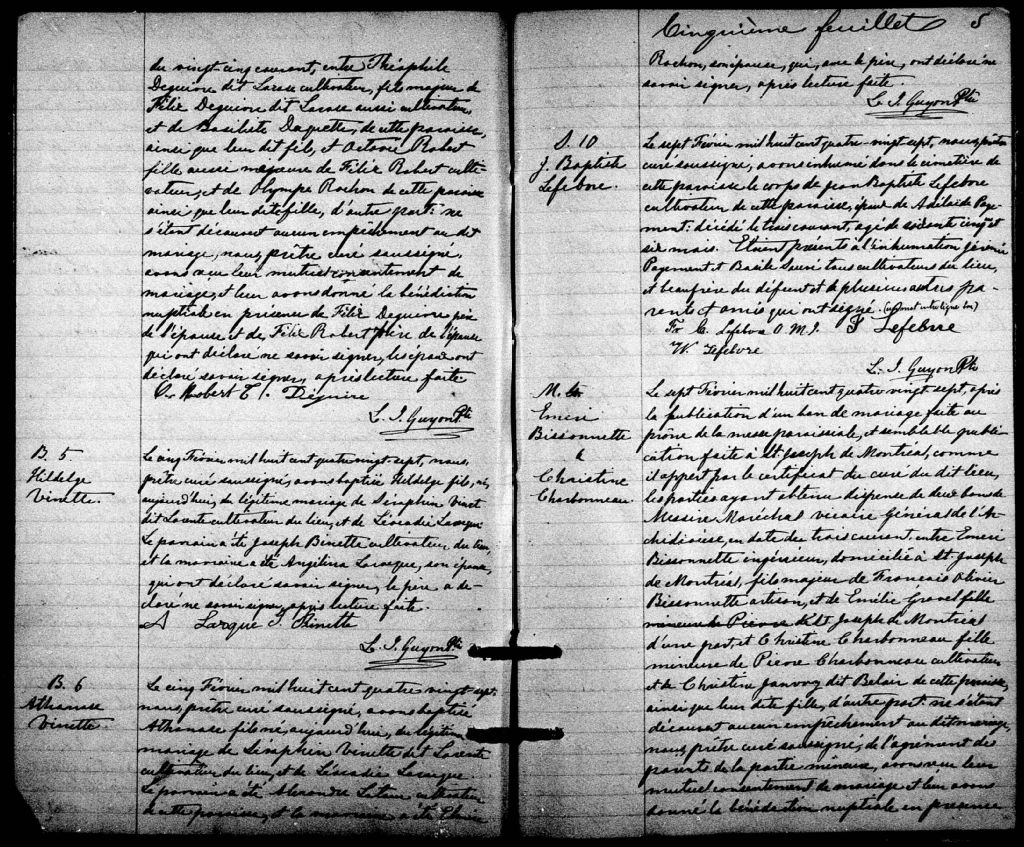 du vingt-cinq courant, entre Théophile
Deguire dit Larose cultivateur, fils majeur de
Félix Deguire dit Larose aussi cultivateur
et de Basilice Daguette, de cette paroisse,
ainsi que leur dit fils, et Octavie Robert
fille aussi majeure de Félix Robert culti-
vateur, et de Olympe Rochon de cette paroisse
ainsi que leur dite fille, d'autre part: ne
s'étant découvert aucun empêchement au dit
mariage, nous, prêtre curé soussigné,
avons reçu leur mutuel consentement de
mariage, et leur avons donné la bénédiction
nuptiale en présence de Félix Deguire père
de l'époux et de Félix Robert père de l'épouse
qui ont déclaré ne savoir signer, les époux ont
déclaré savoir signer, après lecture faite
O. Robert T. Deguire
L. J. Guyon Ptre
B. 5
Hildege
Vinette
Le cinq Février mil huit cent quatre vingt-sept, nous,
prêtre curé soussigné, avons baptisé Hildege fils, né
aujourd'hui, du légitime mariage de Séraphin Vinet
dit Larente cultivateur du lieu, et de Léocadie Larocque
Le parrain a été Joseph Binette cultivateur du lieu
et la marraine a été Angélina Larocque, son épouse,
qui ont déclaré savoir signer, le père a dé-
claré ne savoir signer, après lecture faite.
A Larocque J. Binette
L. J. Guyon Ptre
B. 6
Athanase
Vinette
Le cinq Février mil huit cent quatre vingt sept
nous, prêtre curé soussigné, avons baptisé
Athanase fils né, aujourd'hui, du légitime
mariage de Séraphin Vinette dit Larente
cultivateur du lieu, et de Léocadie Larocque.
Le parrain a été Alexandre cultivateur
de cette paroisse, et la marraine a été
Cinquième feuillet 5
Rochon, son épouse, qui, avec le père, ont déclaré ne
savoir signer, après lecture faite.
L. J. Guyon Ptre
S. 10
J. Baptiste
Lefebvre.
Le sept Février mil huit cent quatre-vingt sept, nous prêtre
curé soussigné, avons inhumé dans le cimetière de
cette paroisse le corps de Jean Baptiste Lefebvre
cultivateur de cette paroisse, époux de Adélaïde Paye-
ment: décédé le trois courant, agé de soixante cinq et
six mois. Etaient présents à l'inhumation Jérémie
Payement et Basile tous cultivateurs du lieu,
et beaufrère du défunt et de plusieurs autres pa-
rents et amis qui ont signé.
Fr C. Lefebvre O.M.I. J Lefebvre
W. Lefebvre
L. J. Guyon Ptre
M. 4
Emeri
Bissonnette
&
Christine
Charbonneau
Le sept Février mil huit cent quatre vingt sept, après
la publication d'un ban de mariage faite au
prône de la messe paroissiale, et semblable publi-
cation faite à St Joseph de Montréal, comme
il appert par le certificat du curé du dit lieu,
les parties ayant obtenu dispense de deux bans de
Messire Maréchal vicaire Général de l'Ar-
chidiocèse, en date du trois courant, entre Emeri
Bissonnette ingénieur, domicilié à St. Joseph
de Montréal, fils majeur de Francois Olivier
Bissonnette artisan, et de Emélie Gravel fille
mineure de Pierre de St Joseph de Montréal
d'une part, et Christine Charbonneau fille
mineure de Pierre Charbonneau cultivateur
et de Christine Janvry dit Belair de cette paroisse,
ainsi que leur dite fille, d'autre part: ne s'étant
découvert aucun empêchement au dit mariage,
nous, prêtre curé soussigné, de l'agrément des
parents de la partie mineure, avons reçu leur
mutuel consentement de mariage et leur avons
donné la bénédiction nuptiale en présence